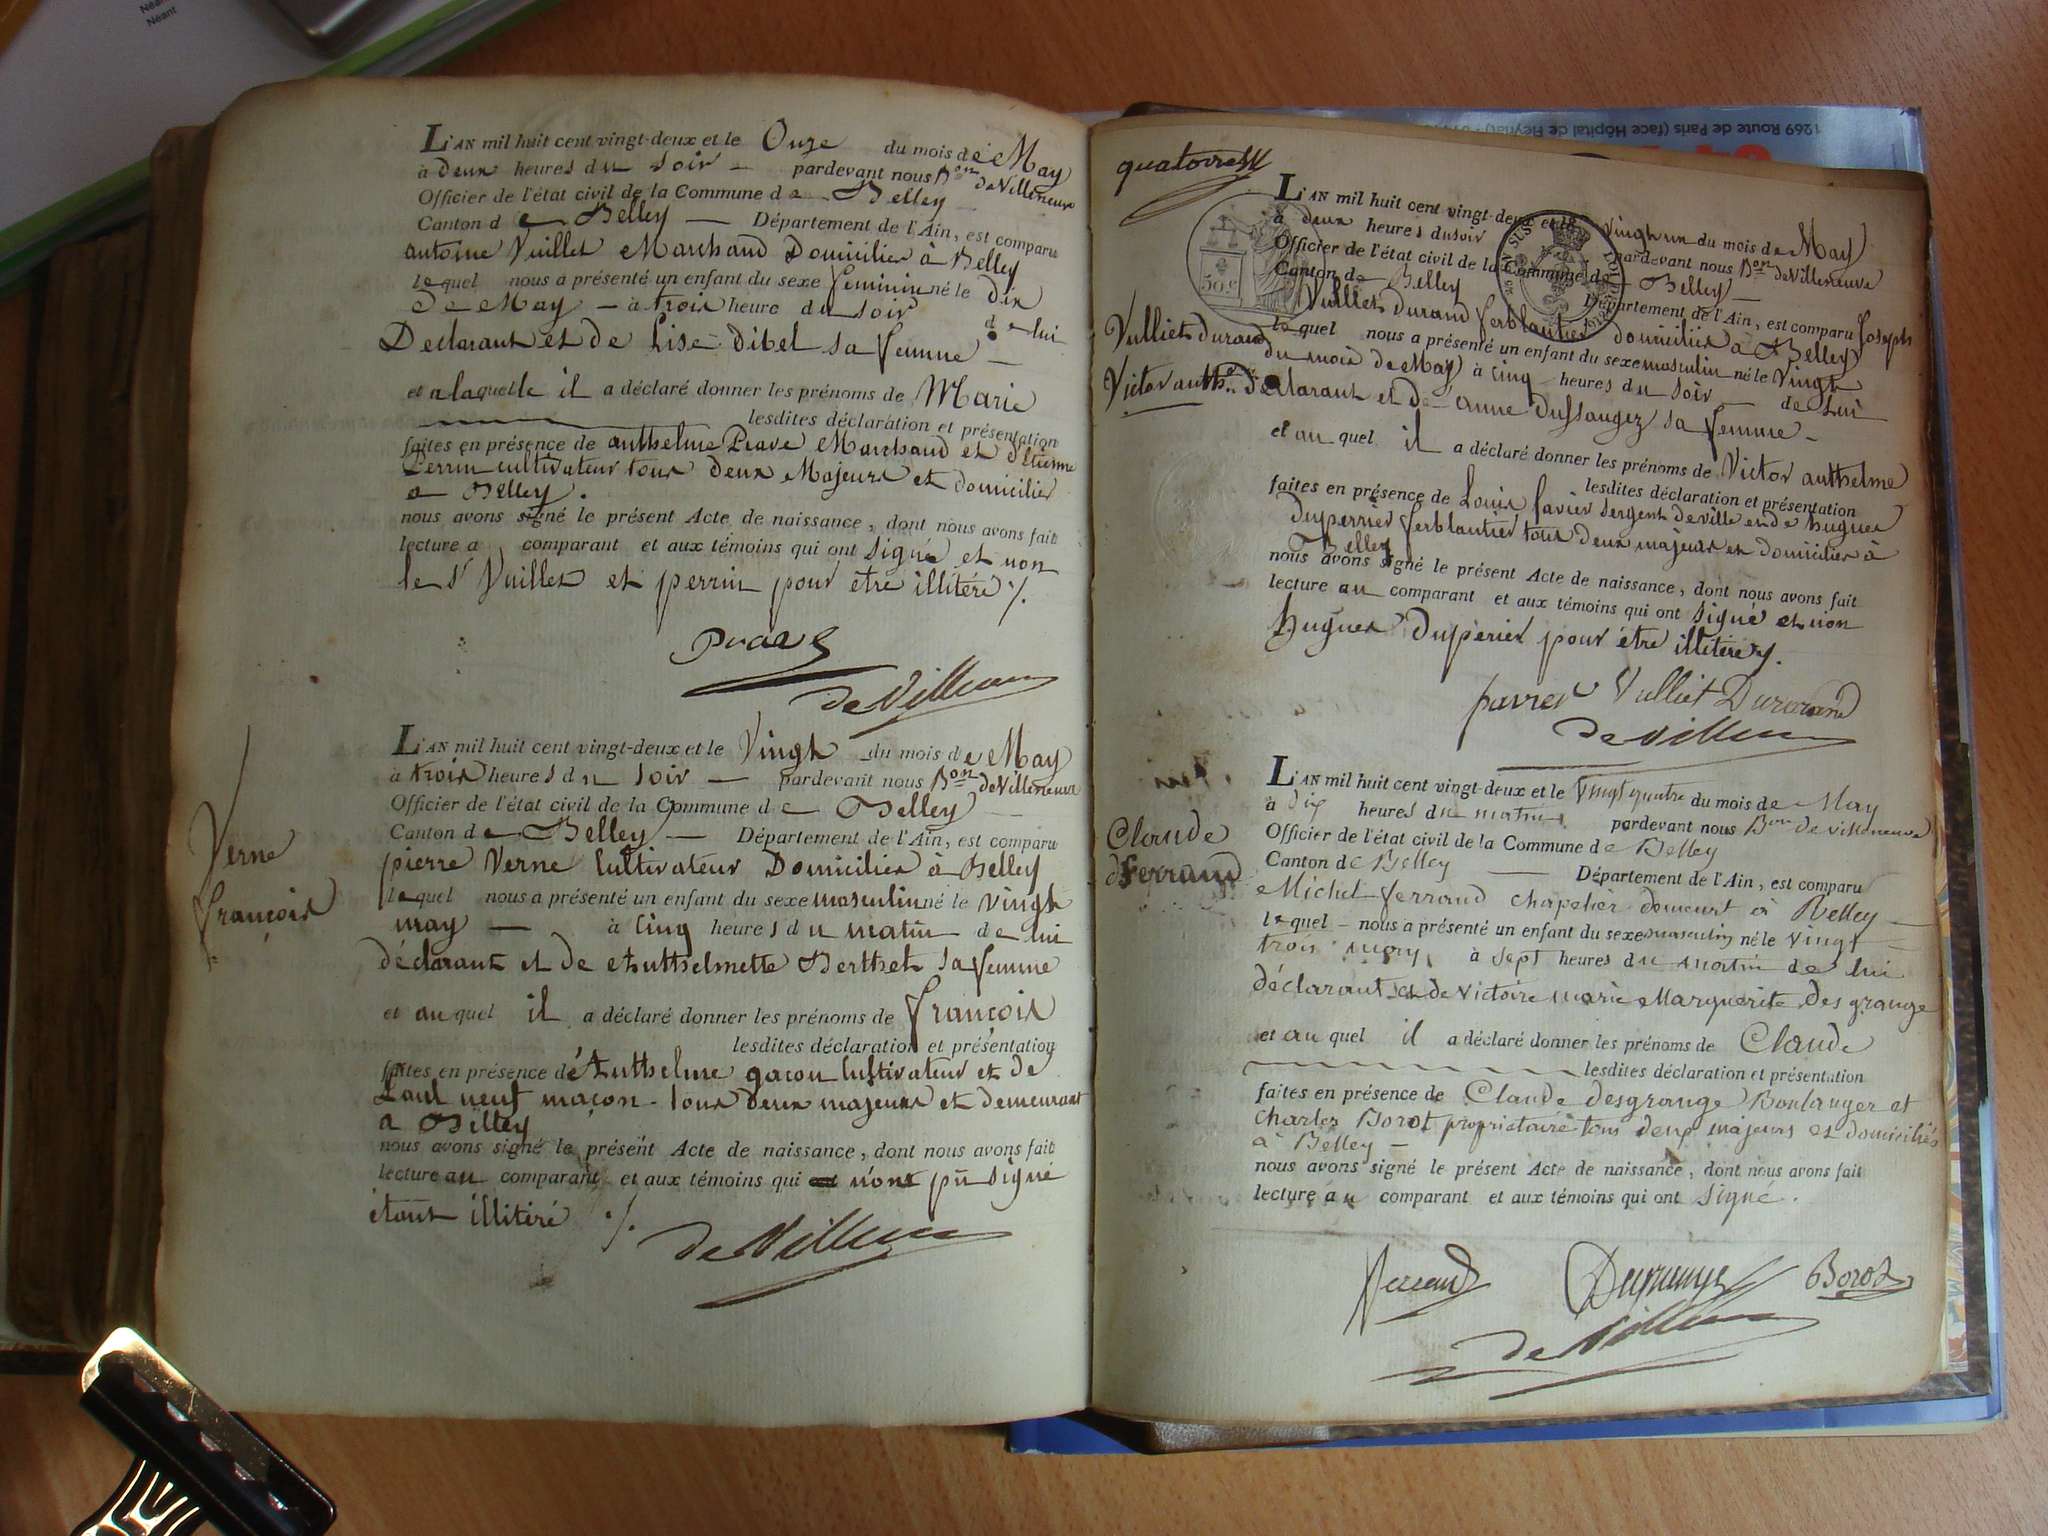 Néant
L'AN mil huit cent vingt-deux et le Onze du mois de May
à deux heures du soir - pardevant nous Bon de Villeneuve
Officier de l'état civil de la Commune de Belley
Canton de Belley - Département de l'Ain, est comparu
antoine Vuillet Marchand Domicilier à Belley
lequel nous a présenté un enfant du sexe feminin né le dix
de May - à trois heure du soir de lui
Declarant et de Lise Dibel sa femme -
et a laquelle il a déclaré donner les prénoms de Marie
lesdites déclaration et présentation
faites en présence de anthelme Marchand et d'Etienne
Perrin cultivateur tous deux Majeurs et domicilier
a Belley.
nous avons signé le présent Acte de naissance, dont nous avons fait
lecture a comparant et aux témoins qui ont signé et non
le Sr Vuillet et perrin pour etre illitéré /.
de Villeneuve
Verne
françois
L'AN mil huit cent vingt-deux et le Vingt du mois de May
à trois heures du soir - pardevant nous Bon de Villeneuve
Officier de l'état civil de la Commune de Belley
Canton de Belley - Département de l'Ain, est comparu
pierre Verne Cultivateur Domicilier à Belley
lequel nous a présenté un enfant du sexe masculin né le vingt
may - à Cinq heures du matin de lui
déclarant et de Anthelmette Berthet sa femme
et au quel il a déclaré donner les prénoms de françois
lesdites déclaration et présentation
faites en présence d'Anthelme gacon Cultivateur et de
Paul neuf maçon - tous deux majeurs et demeurant
a Belley
nous avons signé le présent Acte de naissance, dont nous avons fait
lecture au comparant et aux témoins qui n'ont pu signé
étant illitéré /.
de Villeneuve
1269 Route de Paris (face Hôpital de Fleyriat)
quatorze
50 c
L'AN mil huit cent vingt-deux et le vingt un du mois de May
à deux heures du soir pardevant nous Bon de Villeneuve
Officier de l'état civil de la Commune de Belley -
Canton de Belley Département de l'Ain, est comparu Joseph
Vulliet Durand ferblantier domicilier a Belley
Vulliet durand
Victor anthe
lequel nous a présenté un enfant du sexe masculin né le Vingt
du mois de May à Cinq heures du soir - de Lui
déclarant et de anne Dussaugez sa femme -
et au quel il a déclaré donner les prénoms de Victor anthelme
lesdites déclaration et présentation
faites en présence de Louis favier sergent de ville et de hugues
Duperrier ferblantier tous deux majeurs et domicilier à
Belley
nous avons signé le présent Acte de naissance, dont nous avons fait
lecture au comparant et aux témoins qui ont signé et non
hugues Duperier pour être illitéré /.
Vulliet Durand
de Villeneuve
Claude
ferrand
L'AN mil huit cent vingt-deux et le Vingt quatre du mois de May
à dix heures du matin pardevant nous Bon de villeneuve
Officier de l'état civil de la Commune de Belley
Canton de Belley - Département de l'Ain, est comparu
Michel ferrand chapelier demeurt à Belley -
lequel - nous a présenté un enfant du sexe masculin né le vingt -
trois may à sept heures du matin de lui
déclarant et de victoire marie Marguerite des grange
et au quel il a déclaré donner les prénoms de Claude
lesdites déclaration et présentation
faites en présence de Claude desgrange Boulanger et
Charles Borot propriétaire tous deux majeurs et domiciliés
à Belley -
nous avons signé le présent Acte de naissance, dont nous avons fait
lecture au comparant et aux témoins qui ont signé.
ferrand Desgrange Borot
de Villeneuve